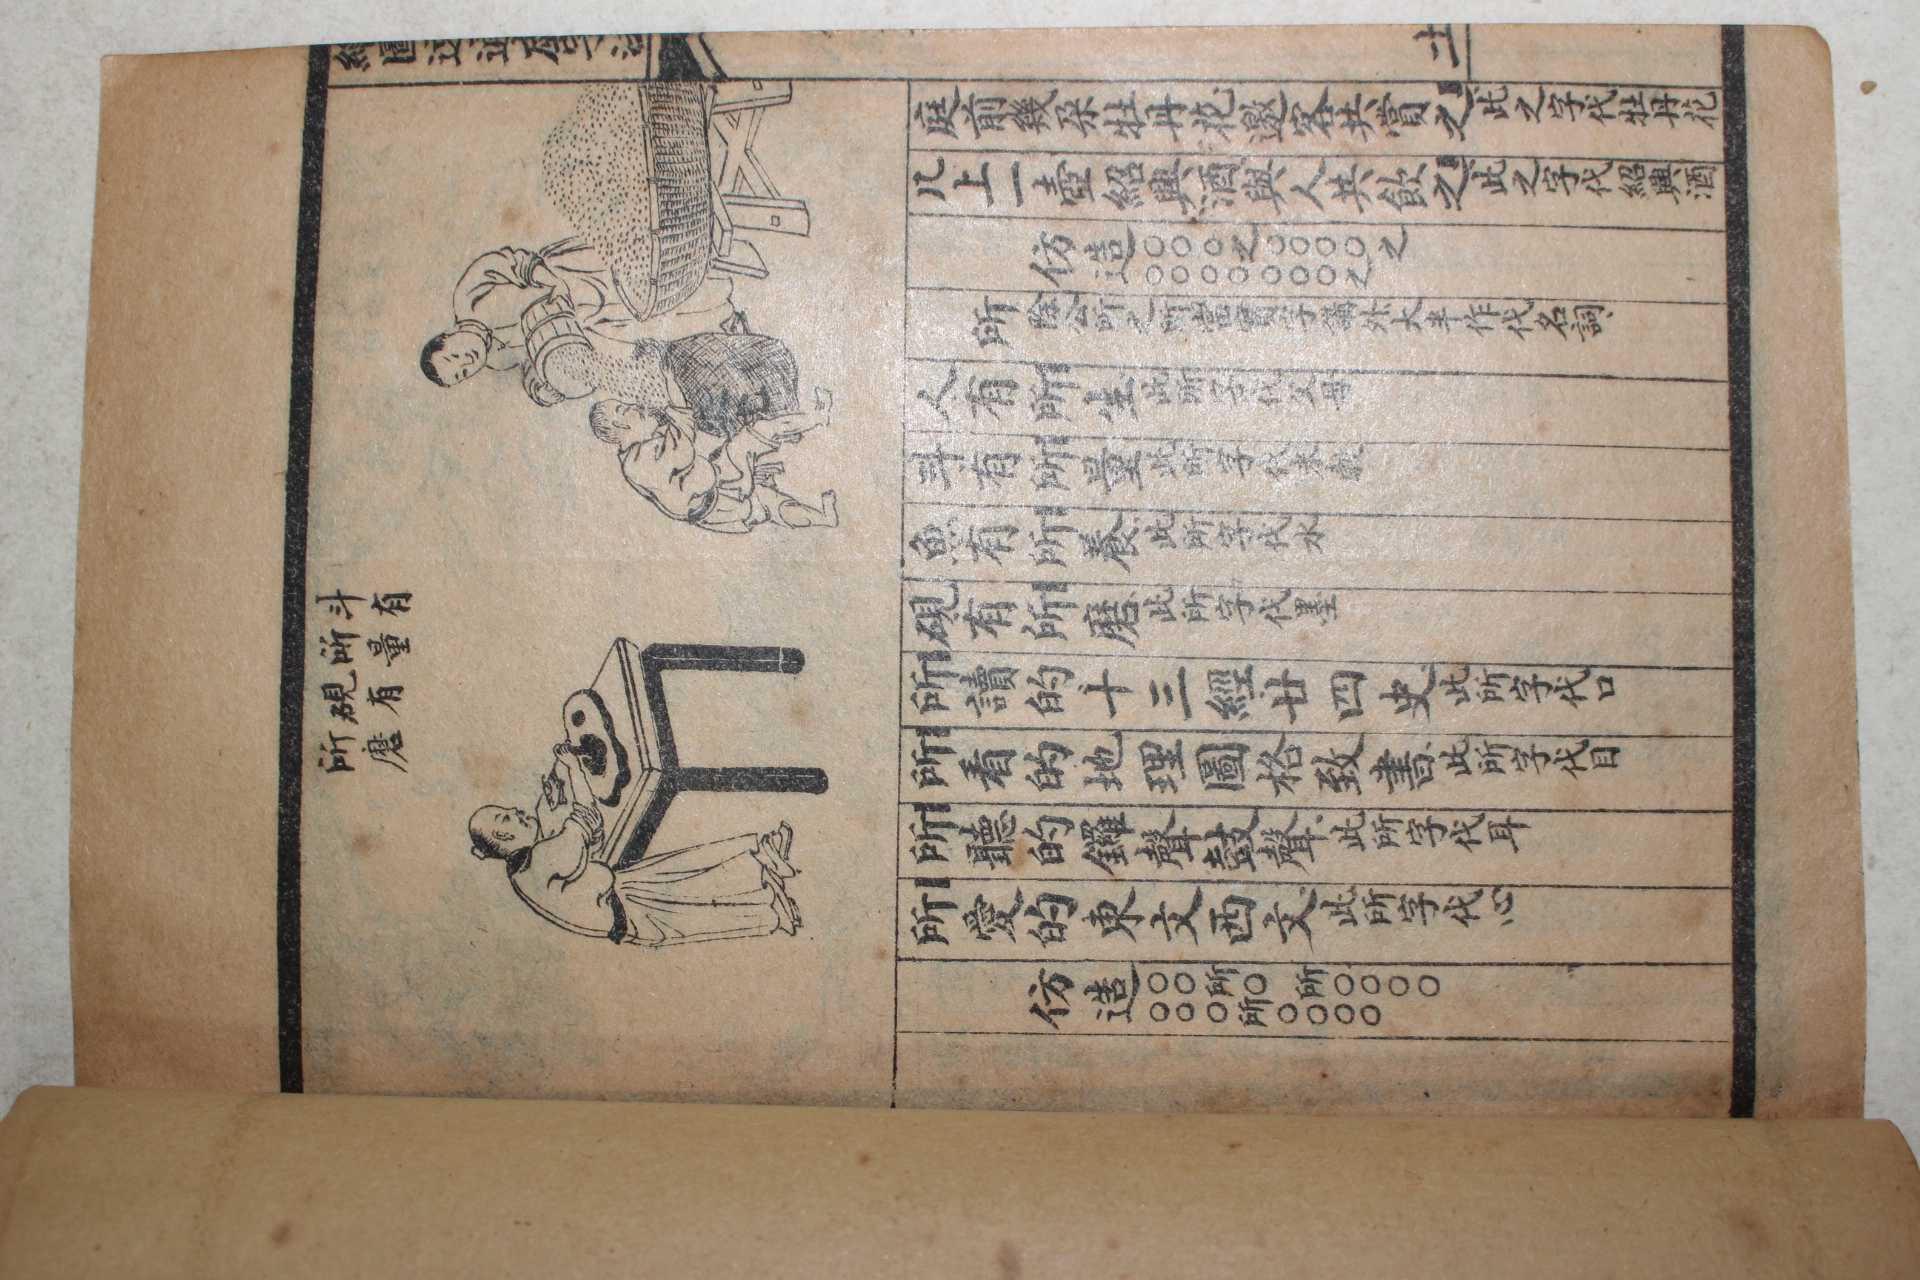 庭前幾朵牡丹花邀客共賞之 此之字代牡丹花
几上一壺紹興酒與人共飲之 此之字代紹興酒
仿造 ○○○之○○○○之
○○○○○○○之
所 除公所之所當實字講外大半作代名詞
人有所生 此所字代父母
斗有所量 此所字代米穀
魚有所養 此所字代水
硯有所磨 此所字代墨
所讀的十三經廿四史 此所字代口
所看的地理圖格致書 此所字代目
所聽的鑼聲鼓聲 此所字代耳
所愛的東文西文 此所字代心
仿造 ○○所○ 所○○○○
○○○所○○○○
斗有
所量
硯有
所磨